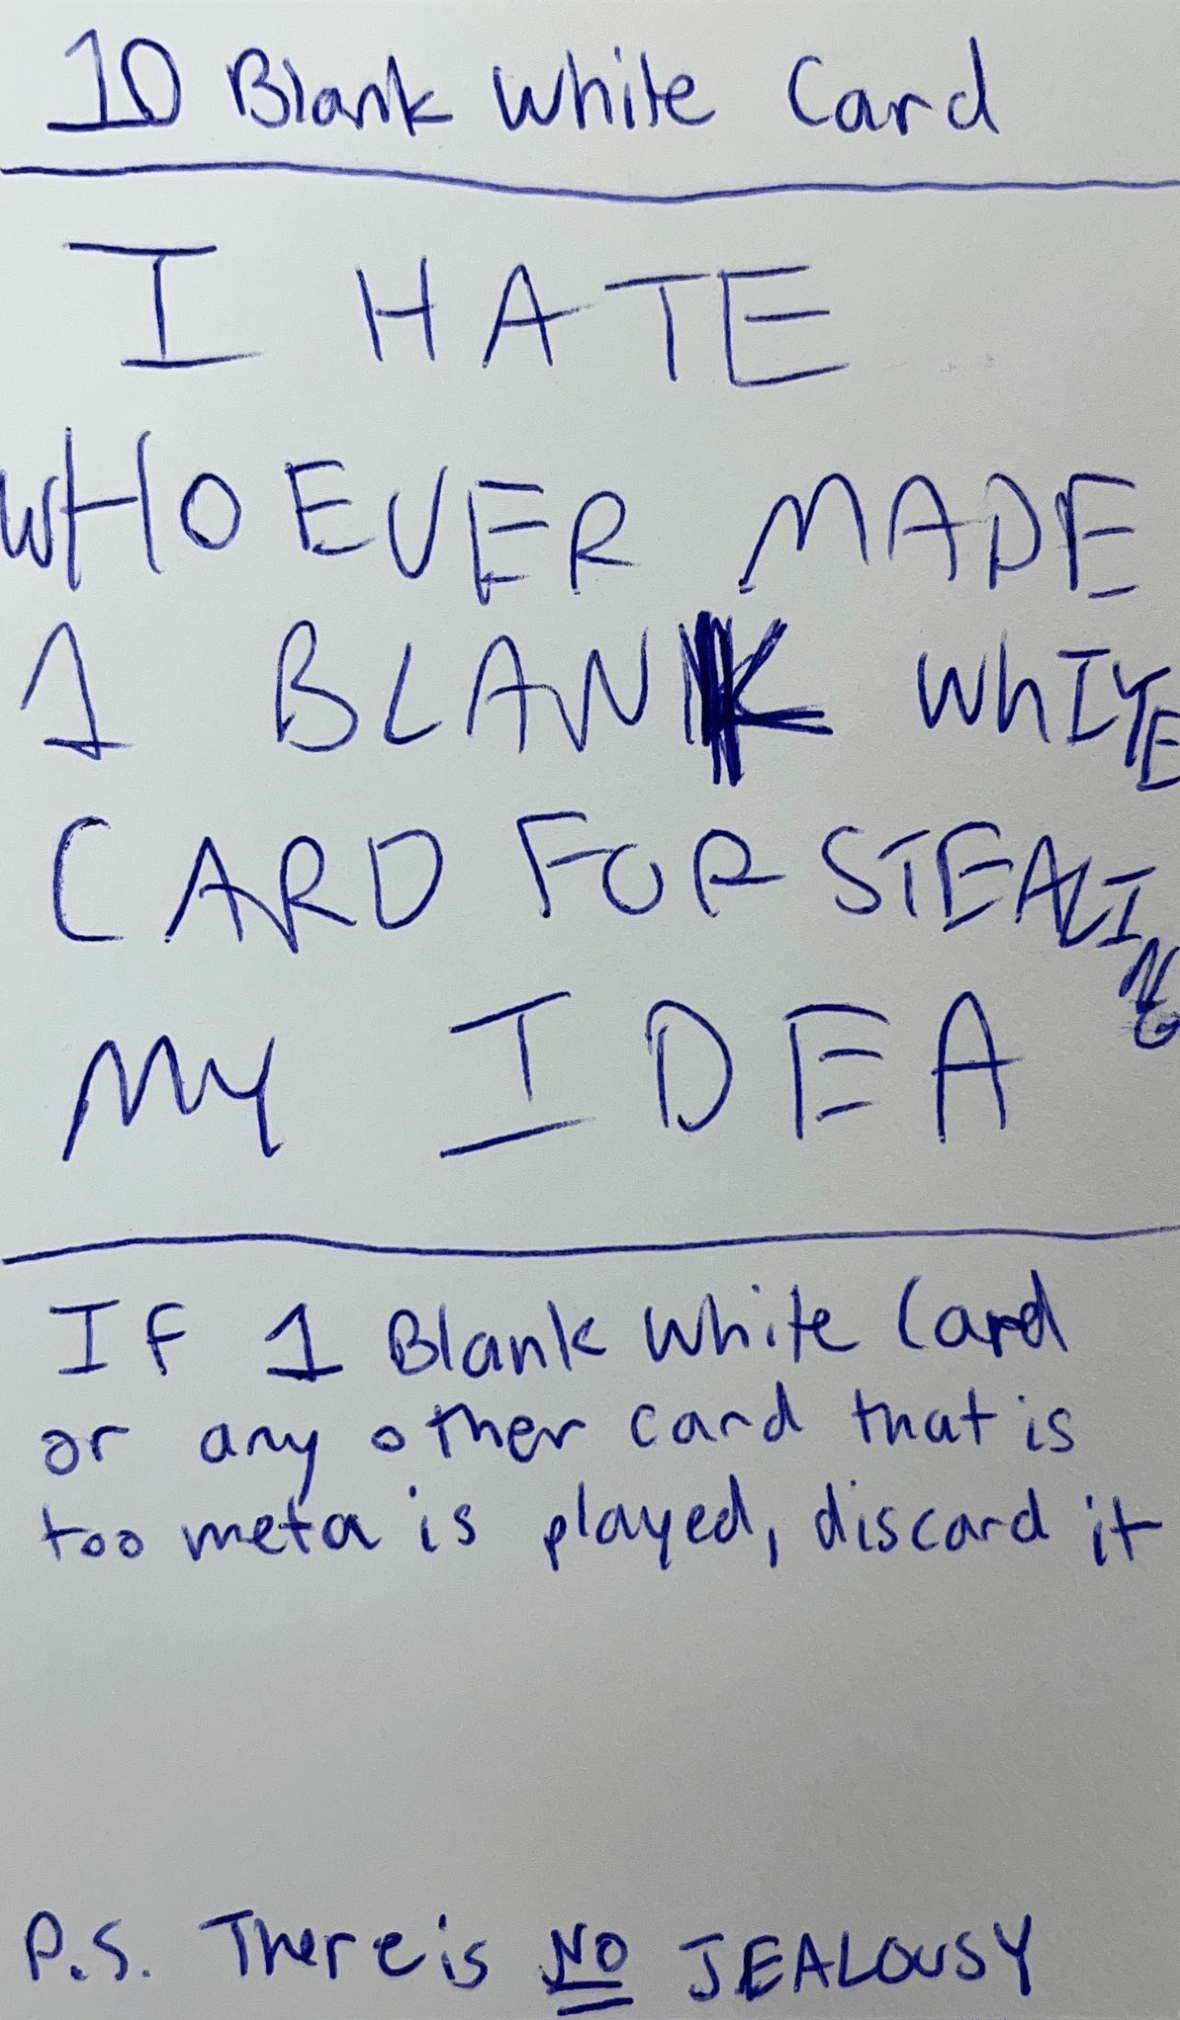 10 Blank White Card
I HATE
WHOEVER MADE
1 BLANK WhITE
CARD FOR STEALING
MY IDEA
IF 1 Blank White Card
or any other card that is
too meta is played, discard it
P.S. There is NO JEALOUSY